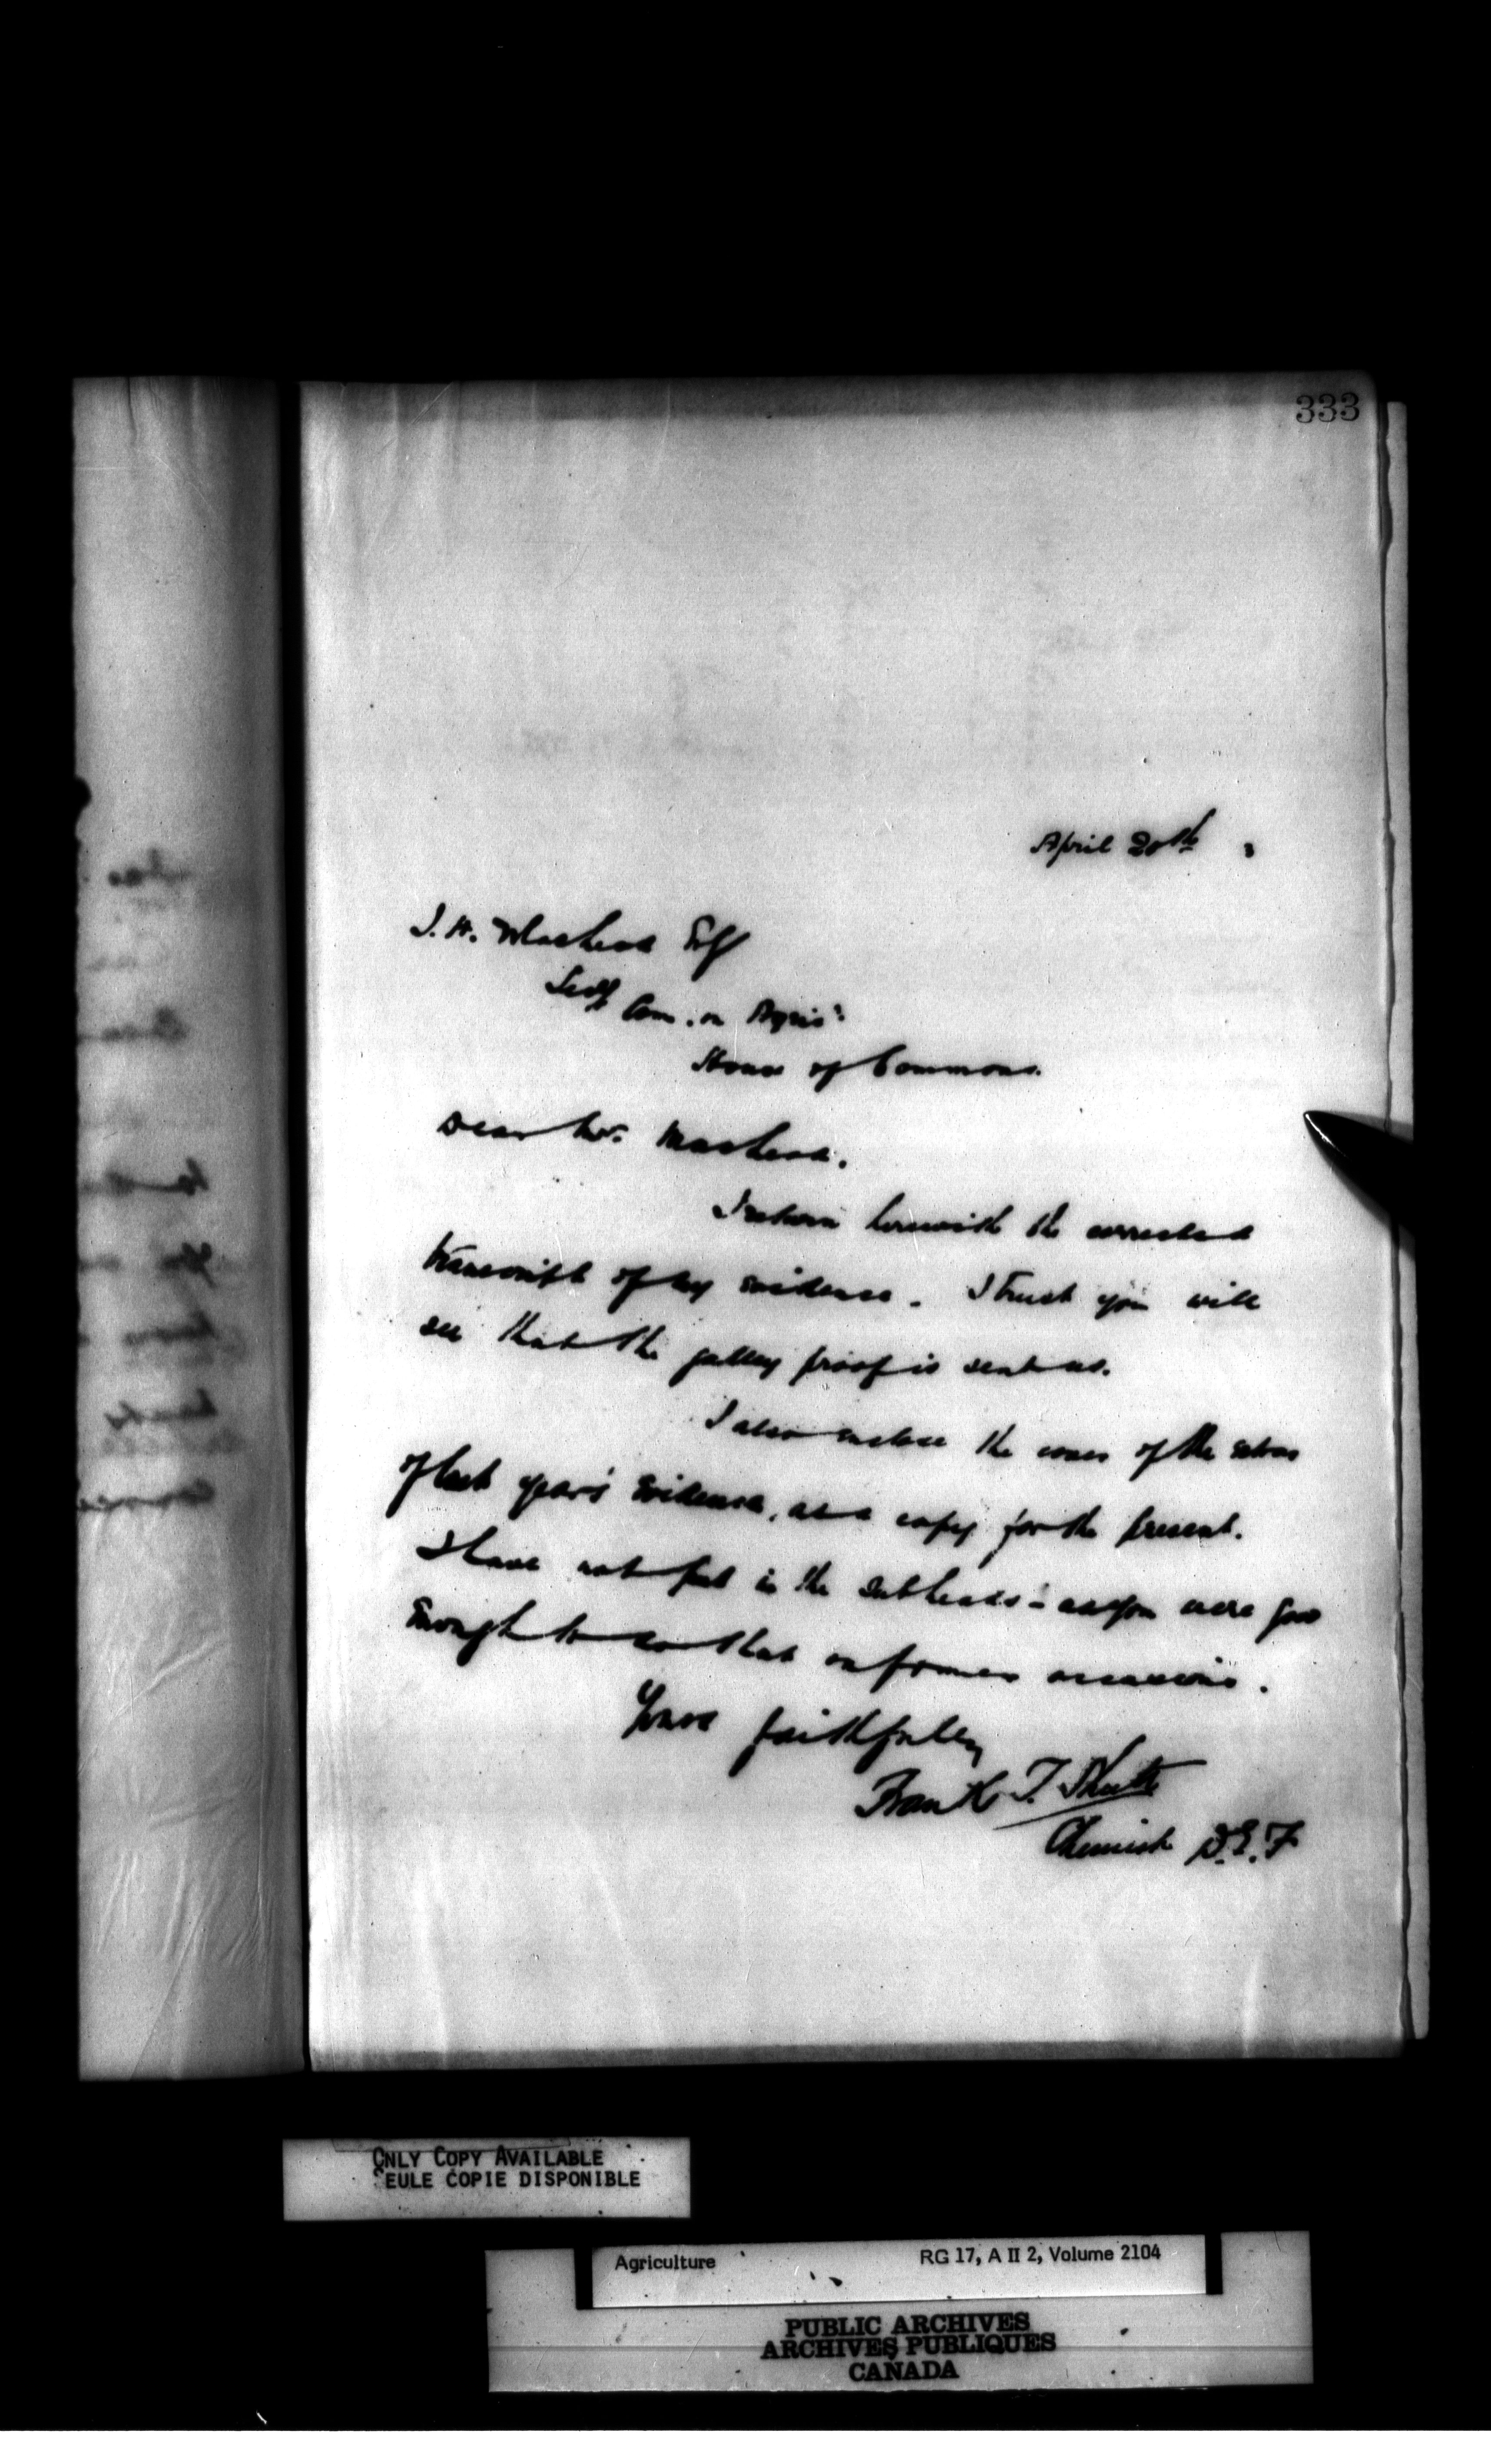 333
April 20th 3
J. H. MacLeod Esq
Secy Com. on Agric:
House of Commons.
Dear Mr. MacLeod.
I return herewith the corrected
transcript of my evidence. I trust you will
see that the galley proof is sent us.
I also enclose the cover of the
of last year's Evidence, as a copy for the present.
I have not put in the subheads - as you were good
enough to do that on former occasions.
Yours faithfully
Frank T. Shutt
Chemist D.E.F
ONLY COPY AVAILABLE
SEULE COPIE DISPONIBLE
Agriculture RG 17, A II 2, Volume 2104
PUBLIC ARCHIVES
ARCHIVES PUBLIQUES
CANADA